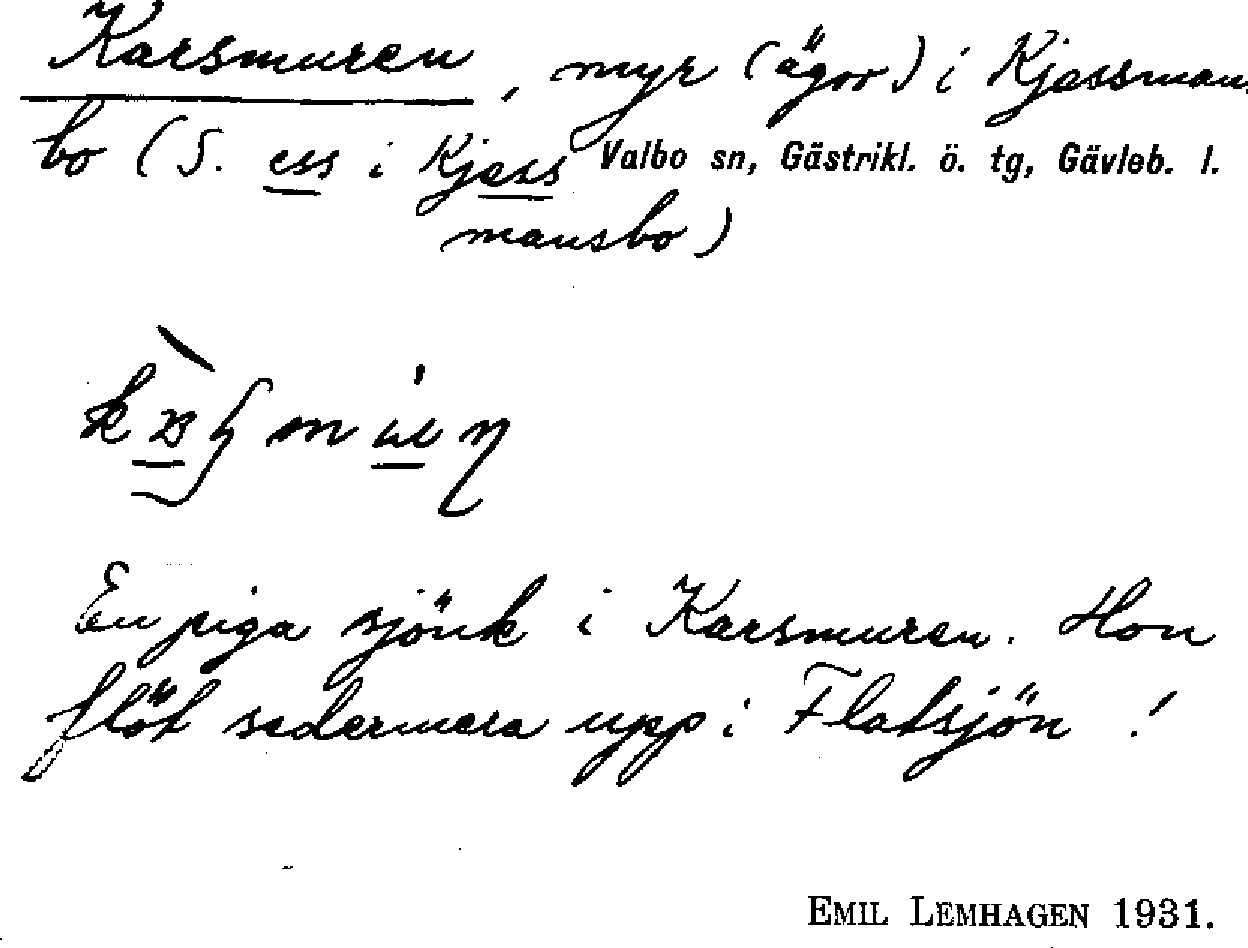 Karsmuren, myr (ägor) i Kjessman
bo (S. ess i Kjess Valbo sn, Gästrikl. ö. tg, Gävleb. l.
mansbo)
En piga sjönk i Karsmuren. Hon
flöt sedermera upp i Flatsjön!
EMIL LEMHAGEN 1931.